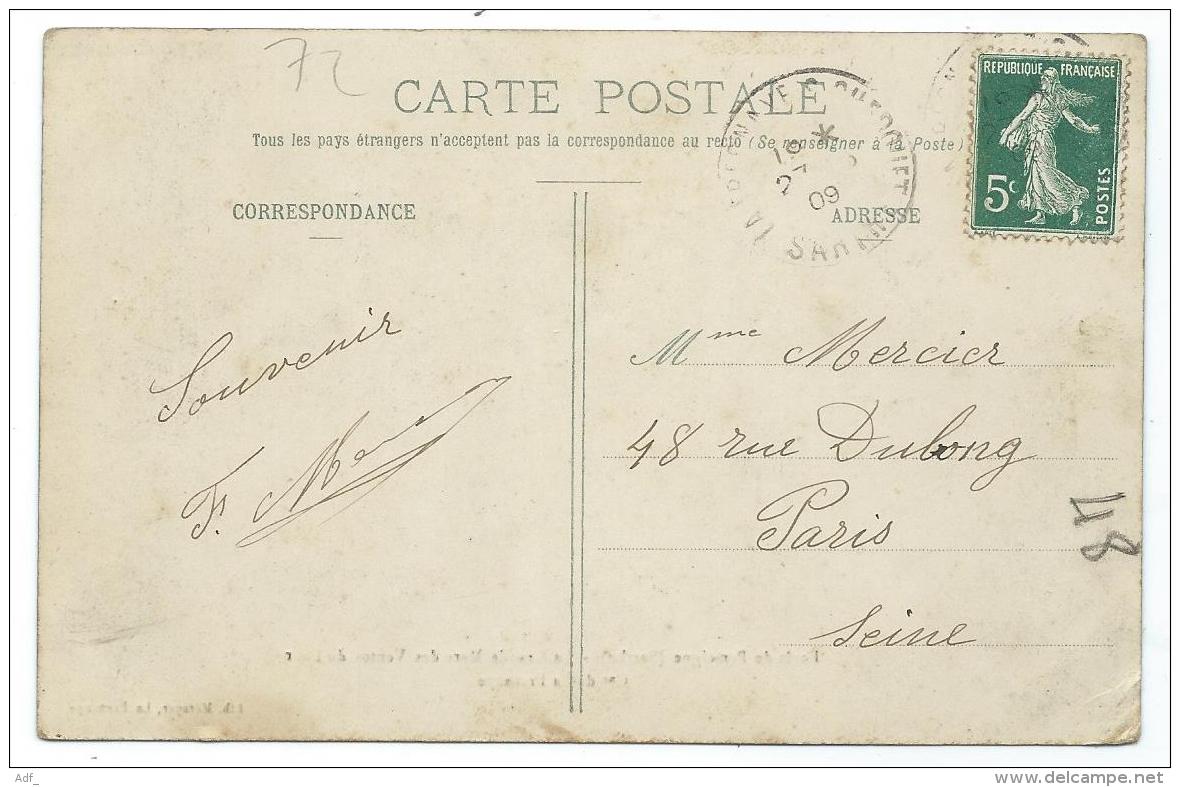 72
CARTE POSTALE
Tous les pays étrangers n'acceptent pas la correspondance au recto (Se renseigner à la Poste)
REPUBLIQUE FRANÇAISE
5c
POSTES
09
CORRESPONDANCE
ADRESSE
Souvenir
F.
Mme Mercier
48 rue Dulong
Paris
Seine
48
Adf_
delcampe.net